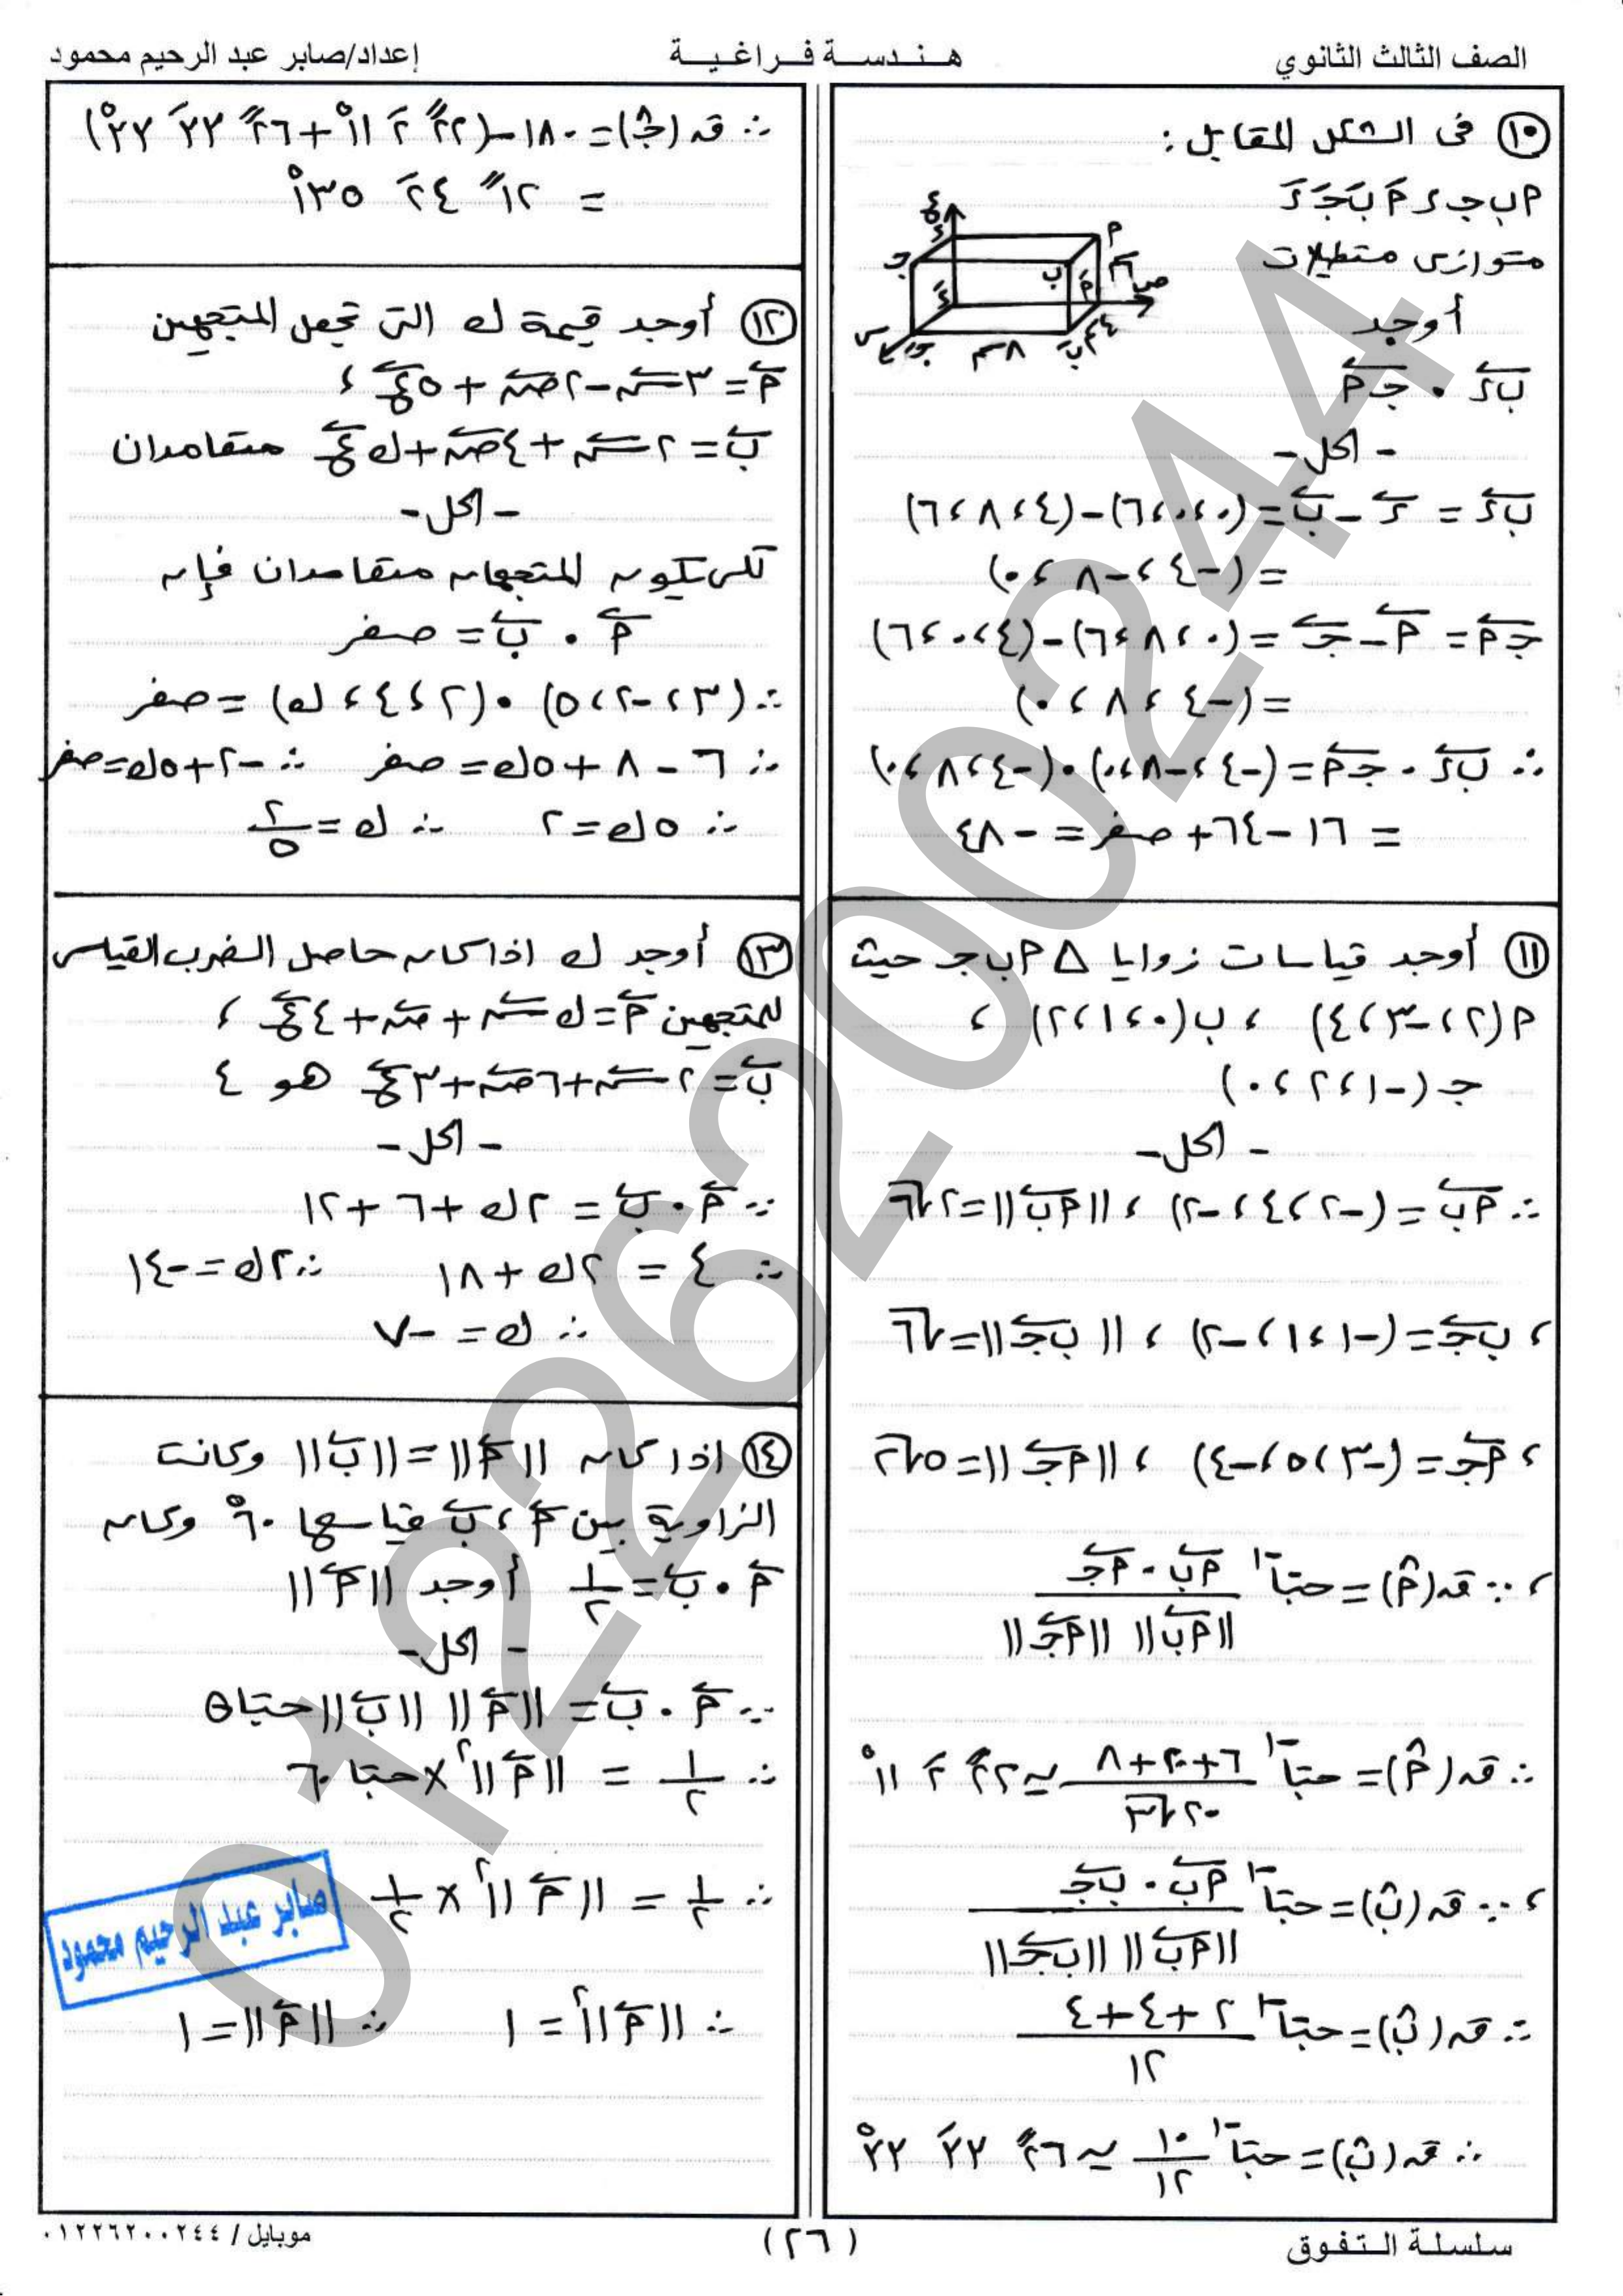 الصف الثالث الثانوي
هـنـدسـة فـراغـيـة
إعداد/صابر عبد الرحيم محمود
١٠ فى الشكل المقابل :
٢ ب جـ ء ٢َ بَ جـَ ءَ
متوازى مستطيلات
أوجد
بء • جـ٢
ع
ء ٢
جـ ب ٦سم
ءَ ٢َ ص
س جـَ ٨سم بَ ٤سم
- الحل -
بء = ء - ب = (٠،٠،٦)-(٤،٨،٦)
= (-٤،-٨،٠)
جـ٢ = ٢ - جـ = (٠،٨،٦)-(٤،٠،٦)
= (-٤،٨،٠)
∴ بء • جـ٢ = (-٤،-٨،٠)•(-٤،٨،٠)
= ١٦-٦٤+صفر = -٤٨
١١ أوجد قياسات زوايا Δ ٢ب جـ حيث
٢(٢،-٣،٤) ، ب(٠،١،٢) ،
جـ (-١،٢،٠)
- الحل -
∴ ٢ب = (-٢،٤،-٢) ، ||٢ب|| = ٢√٦
، بجـ = (-١،١،-٢) ، ||بجـ|| = √٦
، ٢جـ = (-٣،٥،-٤) ، ||٢جـ|| = ٥√٢
، ∵ قہ(٢) = حتا⁻¹ ٢ب • ٢جـ
||٢ب|| ||٢جـ||
∴ قہ(٢) = حتا⁻¹ ٦+٢٠+٨ / ٢٠√٣ ≃ ٢٢ً ٢َ ١١°
، ∵ قہ(ب) = حتا⁻¹ ٢ب • بجـ
||٢ب|| ||بجـ||
∴ قہ(ب) = حتا⁻¹ ٢+٤+٤
١٢
∴ قہ(ب) = حتا⁻¹ ١٠/١٢ ≃ ٢٦ً ٣٣َ ٣٣°
∴ قہ(جـ) = ١٨٠-(٢٢ً ٢َ ١١°+٢٦ً ٣٣َ ٣٣°)
= ١٢ً ٢٤َ ١٣٥°
١٢ أوجد قيمة ك التى تجعل المتجهين
٢ = ٣س - ٢ص + ٥ع ،
ب = ٢س + ٤ص + ك ع متعامدان
- الحل -
لكى يكون المتجهان متعامدان فإن
٢ • ب = صفر
∴ (٣،-٢،٥) • (٢،٤،ك) = صفر
∴ ٦ - ٨ + ٥ك = صفر ∴ -٢+٥ك=صفر
∴ ٥ك = ٢ ∴ ك = ٢/٥
١٣ أوجد ك اذا كان حاصل الضرب القياسى
للمتجهين ٢ = ك س + ص + ٤ع ،
ب = ٢س + ٦ص + ٣ع هو ٤
- الحل -
∵ ٢ • ب = ٢ك + ٦ + ١٢
∴ ٤ = ٢ك + ١٨ ∴ ٢ك = -١٤
∴ ك = -٧
١٤ اذا كان ||٢|| = ||ب|| وكانت
الزاوية بين ٢ ، ب قياسها ٦٠° وكان
٢ • ب = ١/٢ أوجد ||٢||
- الحل -
∵ ٢ • ب = ||٢|| ||ب|| حتا θ
∴ ١/٢ = ||٢||² × حتا ٦٠
∴ ١/٢ = ||٢||² × ١/٢
∴ ||٢||² = ١ ∴ ||٢|| = ١
صابر عبد الرحيم محمود
01226200244
سلسلة التفوق
(٢٦)
موبايل / ٠١٢٢٦٢٠٠٢٤٤